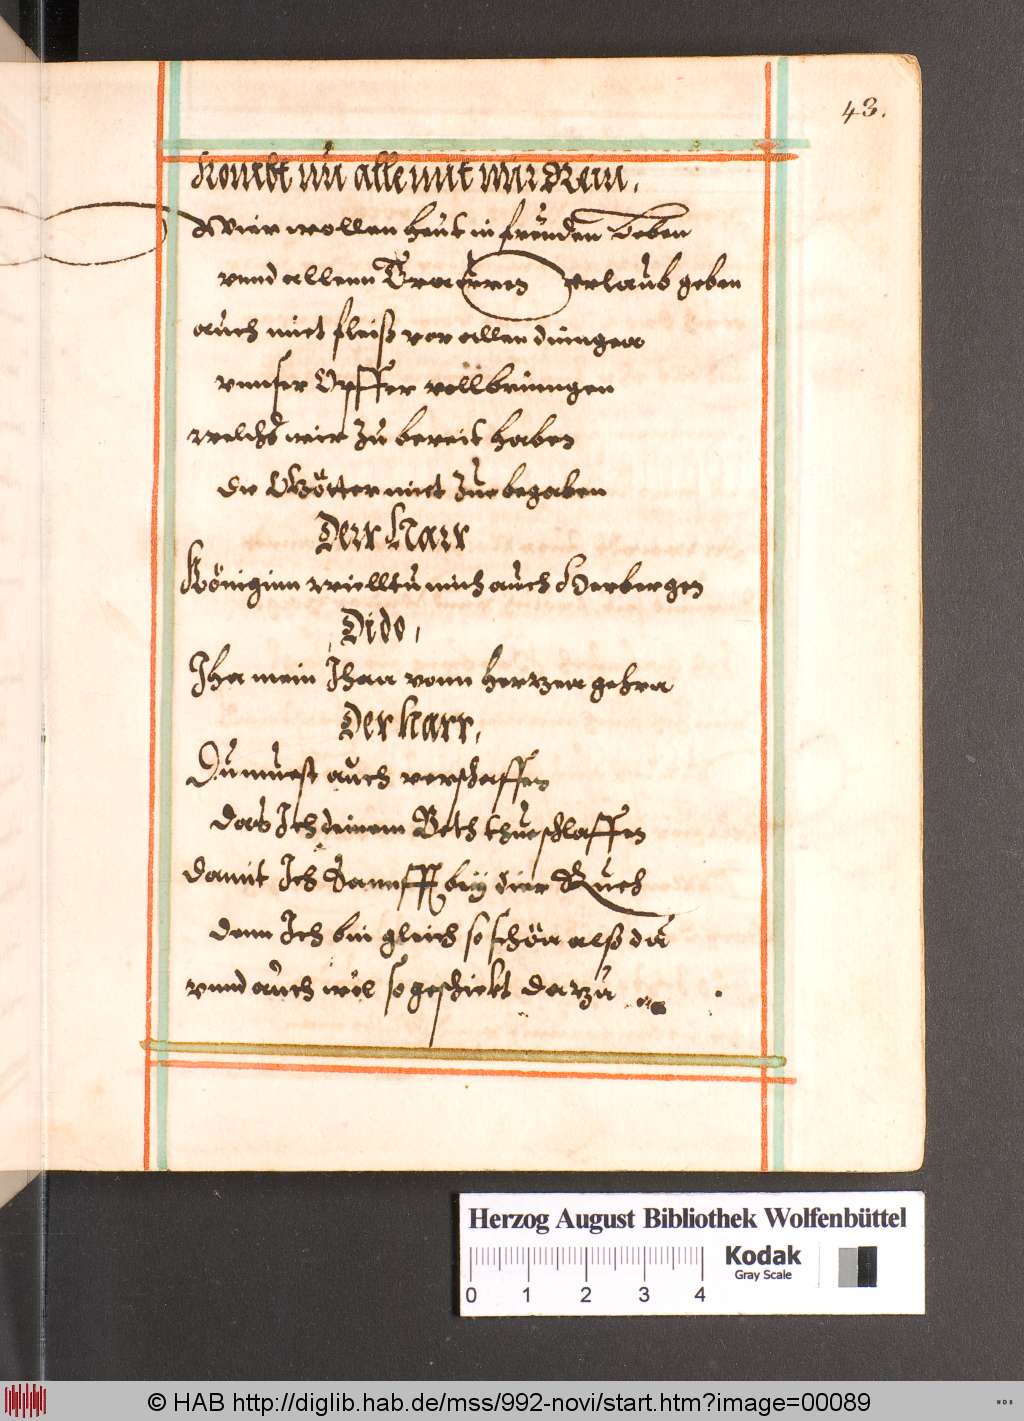 43.
Kombt nu alle mit mir Rein,
Wier wollen heut in freuden Leben
vnnd allenn Trauren erlaub geben
auch mit fleiß vor allen dinngen
vnnser Opffer vollbrinngen
welchs wir zu bereit haben
die Götter mit Zue begaben
Derr Narr
Königinn wielltu mich auch Herbergen
Dido,
Iha mein Ihan vonn Herzen gehrn
Der Narr,
Du muest auch verschaffen
das Ich deinem Beth thue schlaffen
damit Ich Sannfft bey dier Rueh
denn Ich bin gleich so schön alß du
vnnd auch wol so geschickt darzu
Herzog August Bibliothek Wolfenbüttel
Kodak
Gray Scale
0 1 2 3 4
© HAB http://diglib.hab.de/mss/992-novi/start.htm?image=00089